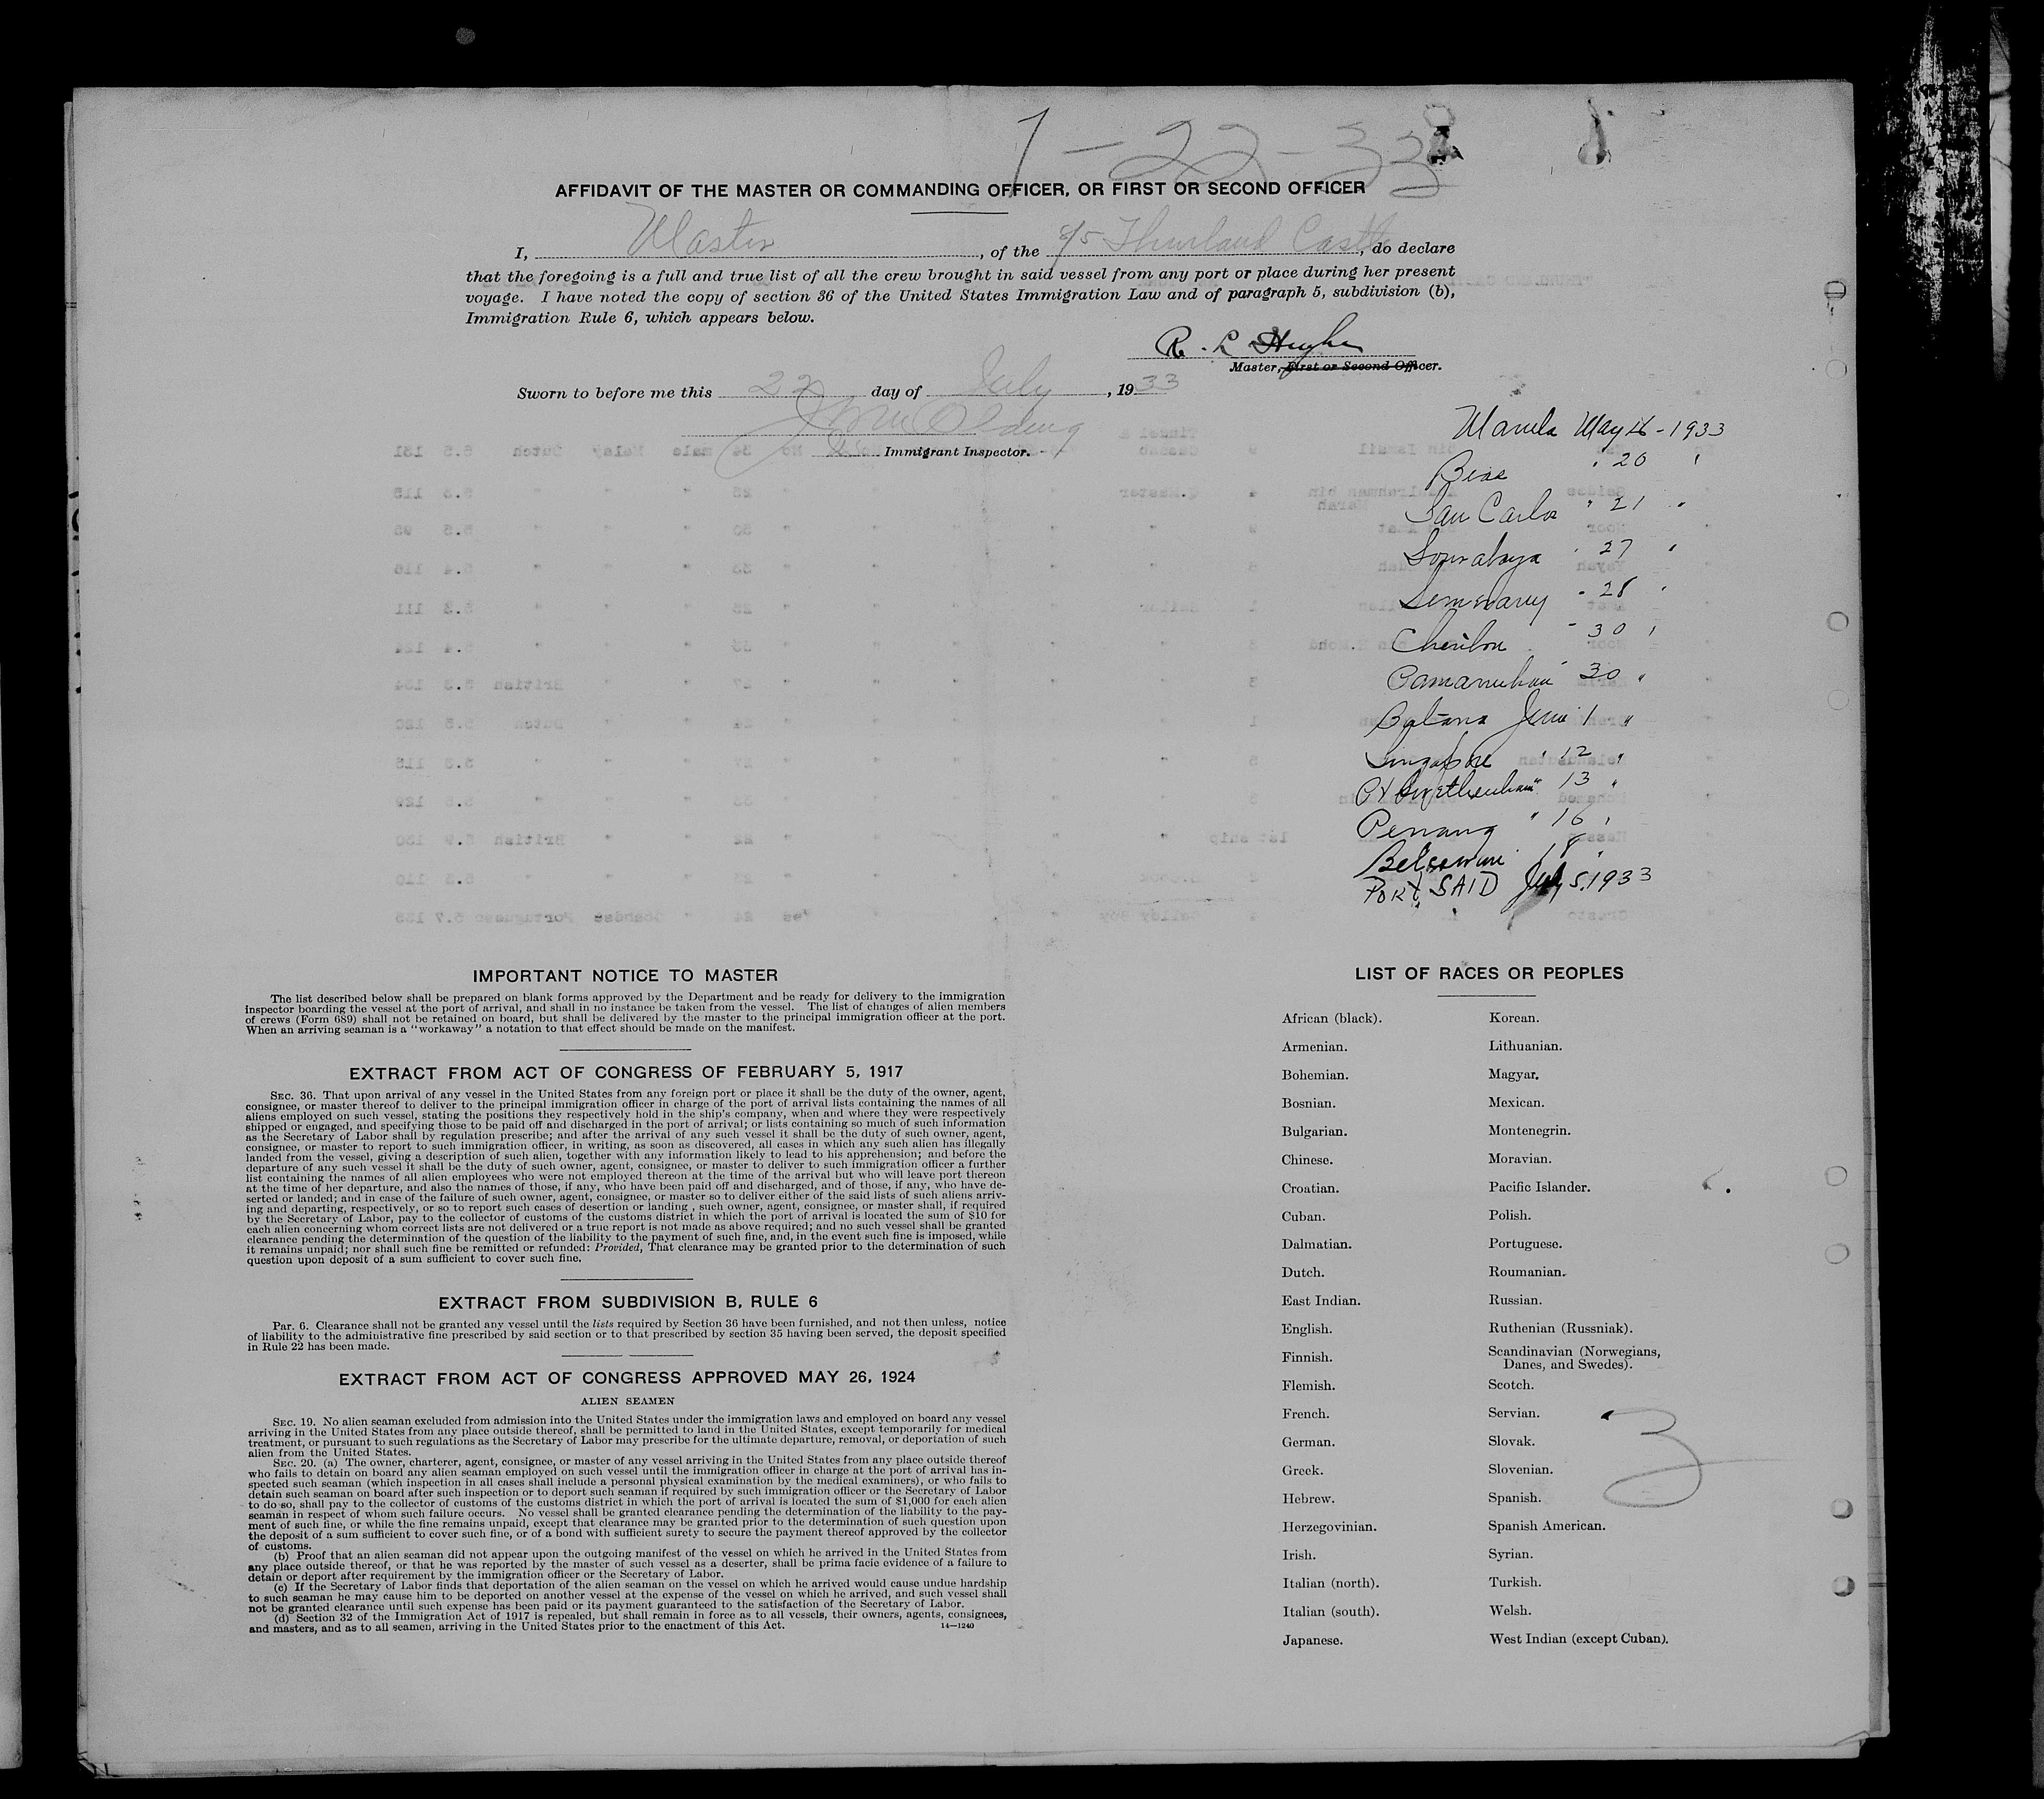 7-22-33
AFFIDAVIT OF THE MASTER OR COMMANDING OFFICER, OR FIRST OR SECOND OFFICER
I, Master, of the S/S Thurland Castle, do declare
that the foregoing is a full and true list of all the crew brought in said vessel from any port or place during her present
voyage. I have noted the copy of section 36 of the United States Immigration Law and of paragraph 5, subdivision (b),
Immigration Rule 6, which appears below.
R. L Hughes
Master, First or Second Officer.
Sworn to before me this 22 day of July, 1933
Immigrant Inspector.
Manila May - 1933
" 20 "
San Carlos " 21 "
Sourabaya " 27 "
" 28 "
Cheribon - 30 "
Pamanukan 30 "
June 1 "
Singapore " 12 "
Pt Swettenham " 13 "
Penang " 16 "
18 "
PORT SAID July 5. 1933
IMPORTANT NOTICE TO MASTER
The list described below shall be prepared on blank forms approved by the Department and be ready for delivery to the immigration
inspector boarding the vessel at the port of arrival, and shall in no instance be taken from the vessel. The list of changes of alien members
of crews (Form 689) shall not be retained on board, but shall be delivered by the master to the principal immigration officer at the port.
When an arriving seaman is a "workaway" a notation to that effect should be made on the manifest.
EXTRACT FROM ACT OF CONGRESS OF FEBRUARY 5, 1917
SEC. 36. That upon arrival of any vessel in the United States from any foreign port or place it shall be the duty of the owner, agent,
consignee, or master thereof to deliver to the principal immigration officer in charge of the port of arrival lists containing the names of all
aliens employed on such vessel, stating the positions they respectively hold in the ship's company, when and where they were respectively
shipped or engaged, and specifying those to be paid off and discharged in the port of arrival; or lists containing so much of such information
as the Secretary of Labor shall by regulation prescribe; and after the arrival of any such vessel it shall be the duty of such owner, agent,
consignee, or master to report to such immigration officer, in writing, as soon as discovered, all cases in which any such alien has illegally
landed from the vessel, giving a description of such alien, together with any information likely to lead to his apprehension; and before the
departure of any such vessel it shall be the duty of such owner, agent, consignee, or master to deliver to such immigration officer a further
list containing the names of all alien employees who were not employed thereon at the time of the arrival but who will leave port thereon
at the time of her departure, and also the names of those, if any, who have been paid off and discharged, and of those, if any, who have de-
serted or landed; and in case of the failure of such owner, agent, consignee, or master so to deliver either of the said lists of such aliens arriv-
ing and departing, respectively, or so to report such cases of desertion or landing , such owner, agent, consignee, or master shall, if required
by the Secretary of Labor, pay to the collector of customs of the customs district in which the port of arrival is located the sum of $10 for
each alien concerning whom correct lists are not delivered or a true report is not made as above required; and no such vessel shall be granted
clearance pending the determination of the question of the liability to the payment of such fine, and, in the event such fine is imposed, while
it remains unpaid; nor shall such fine be remitted or refunded: Provided, That clearance may be granted prior to the determination of such
question upon deposit of a sum sufficient to cover such fine.
EXTRACT FROM SUBDIVISION B, RULE 6
Par. 6. Clearance shall not be granted any vessel until the lists required by Section 36 have been furnished, and not then unless, notice
of liability to the administrative fine prescribed by said section or to that prescribed by section 35 having been served, the deposit specified
in Rule 22 has been made.
EXTRACT FROM ACT OF CONGRESS APPROVED MAY 26, 1924
ALIEN SEAMEN
SEC. 19. No alien seaman excluded from admission into the United States under the immigration laws and employed on board any vessel
arriving in the United States from any place outside thereof, shall be permitted to land in the United States, except temporarily for medical
treatment, or pursuant to such regulations as the Secretary of Labor may prescribe for the ultimate departure, removal, or deportation of such
alien from the United States.
SEC. 20. (a) The owner, charterer, agent, consignee, or master of any vessel arriving in the United States from any place outside thereof
who fails to detain on board any alien seaman employed on such vessel until the immigration officer in charge at the port of arrival has in-
spected such seaman (which inspection in all cases shall include a personal physical examination by the medical examiners), or who fails to
detain such seaman on board after such inspection or to deport such seaman if required by such immigration officer or the Secretary of Labor
to do so, shall pay to the collector of customs of the customs district in which the port of arrival is located the sum of $1,000 for each alien
seaman in respect of whom such failure occurs. No vessel shall be granted clearance pending the determination of the liability to the pay-
ment of such fine, or while the fine remains unpaid, except that clearance may be granted prior to the determination of such question upon
the deposit of a sum sufficient to cover such fine, or of a bond with sufficient surety to secure the payment thereof approved by the collector
of customs.
(b) Proof that an alien seaman did not appear upon the outgoing manifest of the vessel on which he arrived in the United States from
any place outside thereof, or that he was reported by the master of such vessel as a deserter, shall be prima facie evidence of a failure to
detain or deport after requirement by the immigration officer or the Secretary of Labor.
(c) If the Secretary of Labor finds that deportation of the alien seaman on the vessel on which he arrived would cause undue hardship
to such seaman he may cause him to be deported on another vessel at the expense of the vessel on which he arrived, and such vessel shall
not be granted clearance until such expense has been paid or its payment guaranteed to the satisfaction of the Secretary of Labor.
(d) Section 32 of the Immigration Act of 1917 is repealed, but shall remain in force as to all vessels, their owners, agents, consignees,
and masters, and as to all seamen, arriving in the United States prior to the enactment of this Act.
14—1240
LIST OF RACES OR PEOPLES
African (black).
Armenian.
Bohemian.
Bosnian.
Bulgarian.
Chinese.
Croatian.
Cuban.
Dalmatian.
Dutch.
East Indian.
English.
Finnish.
Flemish.
French.
German.
Greek.
Hebrew.
Herzegovinian.
Irish.
Italian (north).
Italian (south).
Japanese.
Korean.
Lithuanian.
Magyar.
Mexican.
Montenegrin.
Moravian.
Pacific Islander.
Polish.
Portuguese.
Roumanian.
Russian.
Ruthenian (Russniak).
Scandinavian (Norwegians,
Danes, and Swedes).
Scotch.
Servian.
Slovak.
Slovenian.
Spanish.
Spanish American.
Syrian.
Turkish.
Welsh.
West Indian (except Cuban).
3